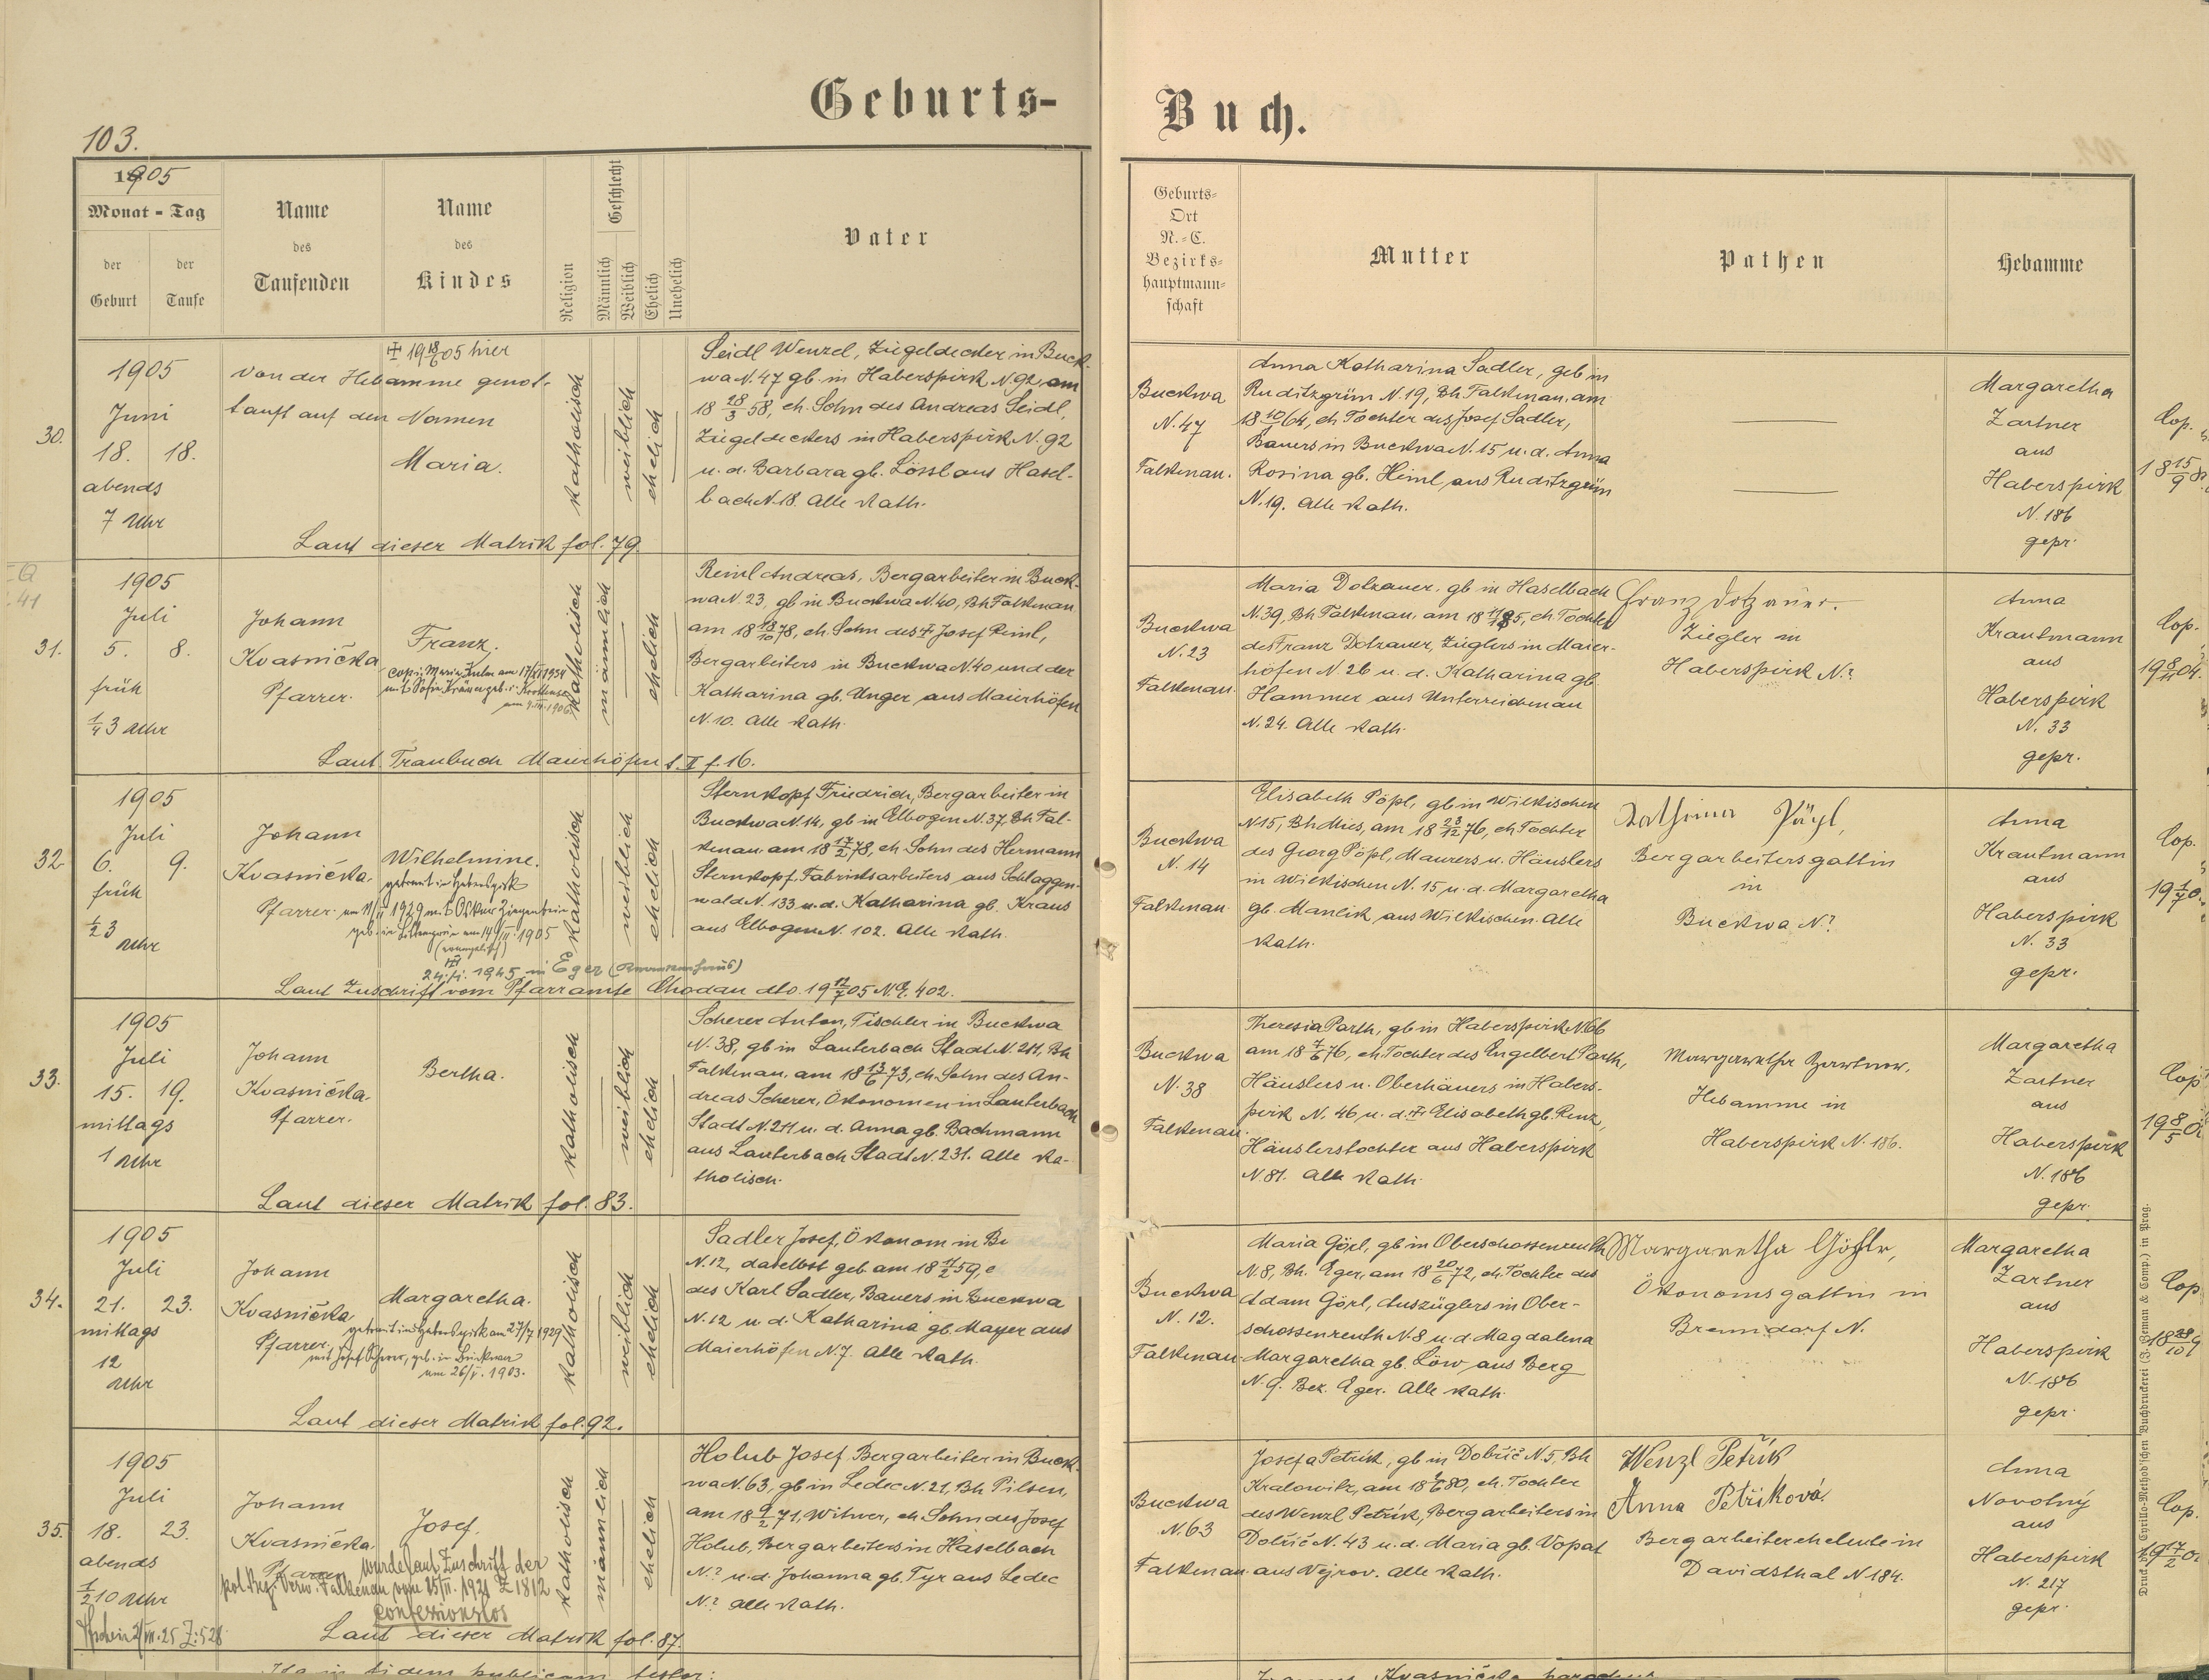 Geburts-
Buch.
103.
1905
Monat - Tag
der Geburt
der Taufe
Name des Taufenden
Name des Kindes
Religion
Geschlecht
Männlich
Weiblich
Ehelich
Unehelich
Vater
Geburts-
Ort
N.-C.
Bezirks-
hauptmann-
schaft
Mutter
Pathen
Hebamme
30.
1905
Juni
18. 18.
abends
7 Uhr
✝ 19 18/6 05 hier
von der Hebamme genot-
tauft auf den Namen
Maria.
katholisch
weiblich
ehelich
Seidl Wenzel, Ziegeldecker in Buck-
wa N. 47 gb. in Haberspirk N. 92, am
18 28/3 58, eh. Sohn des Andreas Seidl,
Ziegeldeckers in Haberspirk N. 92
u. d. Barbara gb. Lössl aus Hasel-
bach N. 18. Alle kath.
Laut dieser Matrik fol. 79.
Buckwa
N. 47
Falkenau.
Anna Katharina Sadler, geb in
Ruditzgrün N. 19, Bh Falkenau, am
18 10/ 64, eh Tochter des Josef Sadler,
Bauers in Buckwa N. 15 u. d. Anna
Rosina gb. Heinl aus Ruditzgrün
N. 19. Alle kath.
Margaretha
Zartner
aus
Haberspirk
N. 186
gepr.
Cop.
18 15/9
31.
1905
Juli
5. 8.
früh
1/4 3 Uhr
Johann
Kvasnička
Pfarrer.
Franz.
katholisch
männlich
ehelich
Reinl Andreas, Bergarbeiter in Buck-
wa N. 23, gb in Buckwa N. 40, Bh Falkenau
am 18 18/10 78, eh. Sohn des ✝ Josef Reinl,
Bergarbeiters in Buckwa N. 40 und der
Katharina gb. Unger aus Maierhöfen
N. 10. Alle kath.
Laut Traubuch Maierhöfen t. II f. 16.
Buckwa
N. 23
Falkenau.
Maria Dotzauer, gb in Haselbach
N. 39, Bh Falkenau, am 18 85, eh Tochter
des Franz Dotzauer, Zieglers in Maier-
höfen N. 26 u. d. Katharina gb
Hammer aus Unterreichenau
N. 24. Alle kath.
Franz Dotzauer.
Ziegler in
Haberspirk N.?
Anna
Krautmann
aus
Haberspirk
N. 33
gepr.
Cop.
32.
1905
Juli
6. 9.
früh
1/2 3
Uhr
Johann
Kvasnička.
Pfarrer.
Wilhelmine.
getraut in Haberspirk
am 11/ 1929 mit Oskar Ziegenhein
(evangelisch)
24. 1945 in Eger (Krankenhaus)
katholisch
weiblich
ehelich
Sternkopf Friedrich, Bergarbeiter in
Buckwa N. 14, gb in Elbogen N. 37, Bh Fal-
kenau am 18 17/2 78, eh Sohn des Hermann
Sternkopf, Fabriksarbeiters aus Schlaggen-
wald N. 133 u. d. Katharina gb. Kraus
aus Elbogen N. 102. Alle kath.
Laut Zuschrift vom Pfarramte Chodau dto. 19 12/7 05 N.E. 402.
Buckwa
N. 14
Falkenau
Elisabeth Pöpl, gb in Wilkischen
N 15, Bh Mies, am 18 23/12 76, eh Tochter
des Georg Pöpl, Maurers u. Häuslers
in Wilkischen N. 15 u. d. Margaretha
gb. Manlik aus Wilkischen. Alle
kath.
Bergarbeitersgattin
in
Buckwa N.?
Anna
Krautmann
aus
Haberspirk
N. 33
gepr.
Cop.
33.
1905
Juli
15. 19.
mittags
1 Uhr
Johann
Kvasnička.
Pfarrer.
Bertha.
katholisch
weiblich
ehelich
Scherer Anton, Tischler in Buckwa
N. 38, gb in Lauterbach Stadt N. 211, Bh
Falkenau, am 18 13/6 73, eh. Sohn des An-
dreas Scherer, Ökonomen in Lauterbach
Stadt N. 211 u. d. Anna gb. Bachmann
aus Lauterbach Stadt N. 231. Alle ka-
tholisch.
Laut dieser Matrik fol. 83.
Buckwa
N. 38
Falkenau.
Theresia Parth, gb in Haberspirk N. 66
am 18 7/6 76, eh. Tochter des Engelbert Parth,
Häuslers u. Oberhäuers in Habers-
pirk N. 46 u. d. ✝ Elisabeth gb. Renz,
Häuslerstochter aus Haberspirk
N. 81. Alle kath.
Margaretha Zartner.
Hebamme in
Haberspirk N. 186.
Margaretha
Zartner
aus
Haberspirk
N. 186
gepr.
Cop
19 8/5
34.
1905
Juli
21. 23.
mittags
12
Uhr
Johann
Kvasnička
Pfarrer.
Margaretha.
getraut in Haberspirk am 27/7 1929
mit Josef Scherer, geb. in Buckwa
am 26/ 1903.
katholisch
weiblich
ehelich
Sadler Josef, Ökonom in Bu
N. 12, daselbst geb am 18 59, e
des Karl Sadler, Bauers in Buckwa
N. 12 u d. Katharina gb. Mayer aus
Maierhöfen N. 7. Alle kath.
Laut dieser Matrik fol. 92.
Buckwa
N. 12.
Falkenau.
Maria Görl, gb in Oberschossenreuth
N. 8, Bh. Eger, am 18 20/6 72, eh. Tochter des
Adam Görl, Auszüglers in Ober-
schossenreuth N. 8 u. d. Magdalena
Margaretha gb. Löw aus Berg
N. 9. Bez. Eger. Alle kath.
Margaretha
Ökonomsgattin in
Brenndorf N.
Margaretha
Zartner
aus
Haberspirk
N. 186
gepr.
Cop
35.
1905
Juli
18. 23.
abends
1/2 10 Uhr
Johann
Kvasnička.
Pfarrer
Josef.
wurde laut Zuschrift der
pol. Bez. Verw. Falkenau vom 15/II. 1921 Z 1812
confessionslos
katholisch
männlich
ehelich
Holub Josef Bergarbeiter in Buck-
wa N. 63, gb in Ledec N. 21, Bh Pilsen,
am 18 9/2 71, Witwer, eh Sohn des Josef
Holub, Bergarbeiters in Haselbach
N.? u. d. Johanna gb. Tyr aus Ledec
N.? Alle kath.
Laut dieser Matrik fol. 87.
Buckwa
N. 63
Falkenau
Josefa Petřík, gb in Dobříč N. 5, Bh
Kralowitz, am 18 80, eh. Tochter
des Wenzl Petřík, Bergarbeiters in
Dobříč N. 43 u. d. Maria gb. Vopat
aus Vejrov. Alle kath.
Wenzl Petřík
Anna Petříková
Bergarbeitereheleute in
Davidsthal N 184.
Anna
Novotný
aus
Haberspirk
N. 217
gepr.
Cop.
Druck der Cyrillo-Method'schen Buchdruckerei (J. Zeman & Comp.) in Prag.